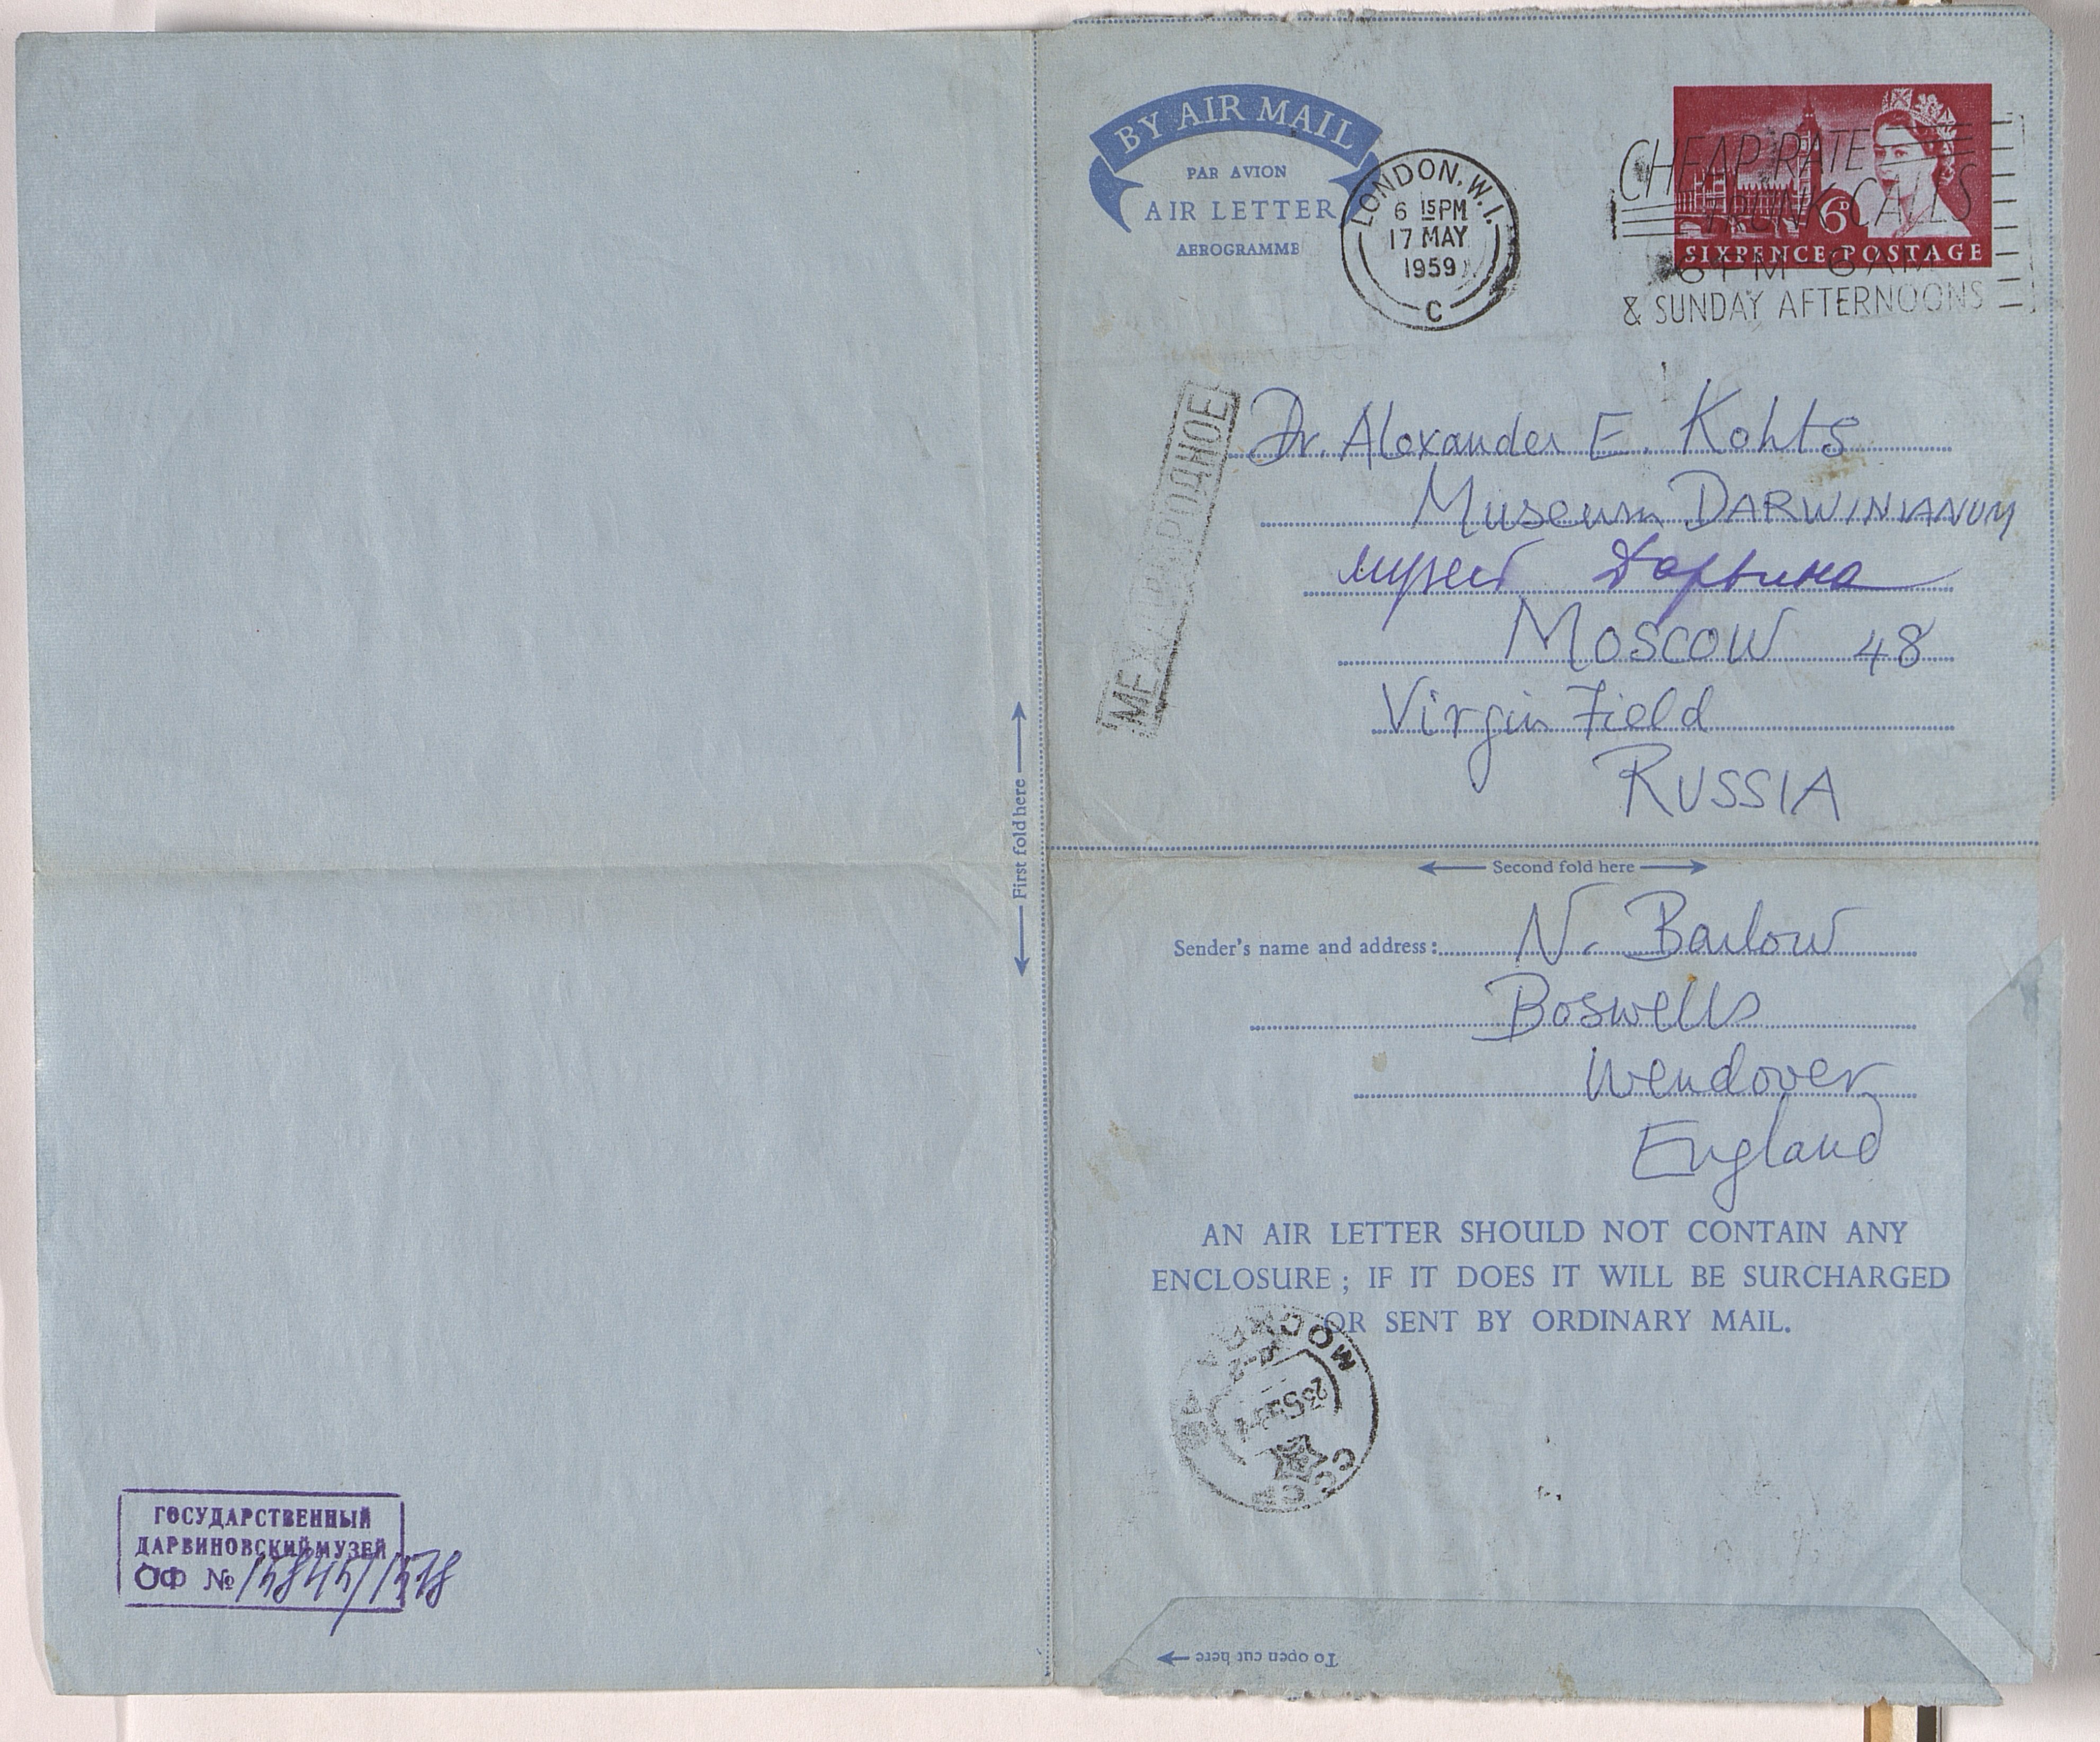 BY AIR MAIL
PAR AVION
AIR LETTER
AEROGRAMME
LONDON. W.1.
6 15PM
17 MAY
1959
C
CHEAP RATE
TRUNK CALLS
6PM-6AM
& SUNDAY AFTERNOONS
6D
SIXPENCE POSTAGE
МЕЖДУНАРОДНОЕ
Dr. Alexander E. Kohts
Museum DARWINIANUM
музей Дарвина
MOSCOW 48
Virgin Field
RUSSIA
First fold here
Second fold here
Sender's name and address: N. Barlow
Boswells
Wendover
England
AN AIR LETTER SHOULD NOT CONTAIN ANY
ENCLOSURE ; IF IT DOES IT WILL BE SURCHARGED
OR SENT BY ORDINARY MAIL.
МОСКВА
СССР
To open cut here
ГОСУДАРСТВЕННЫЙ
ДАРВИНОВСКИЙ МУЗЕЙ
ОФ №